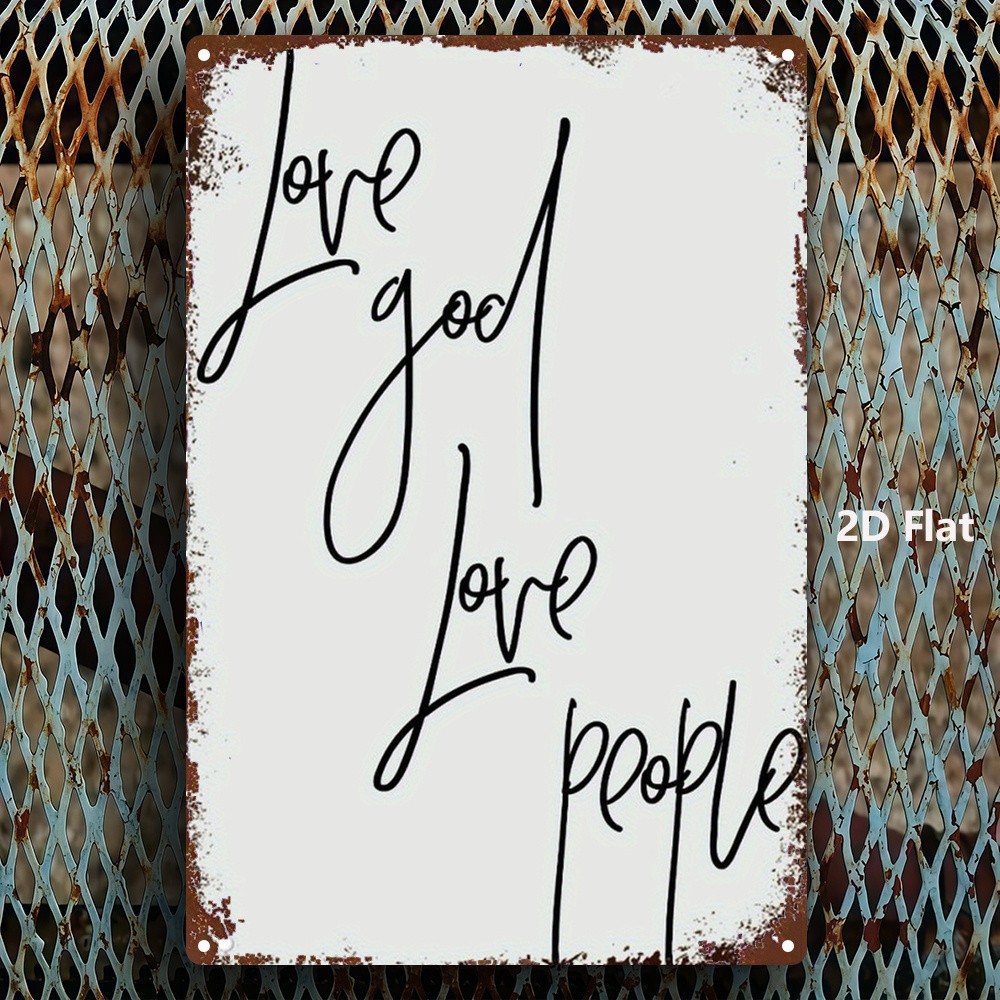 Love
god
Love
people
2D Flat